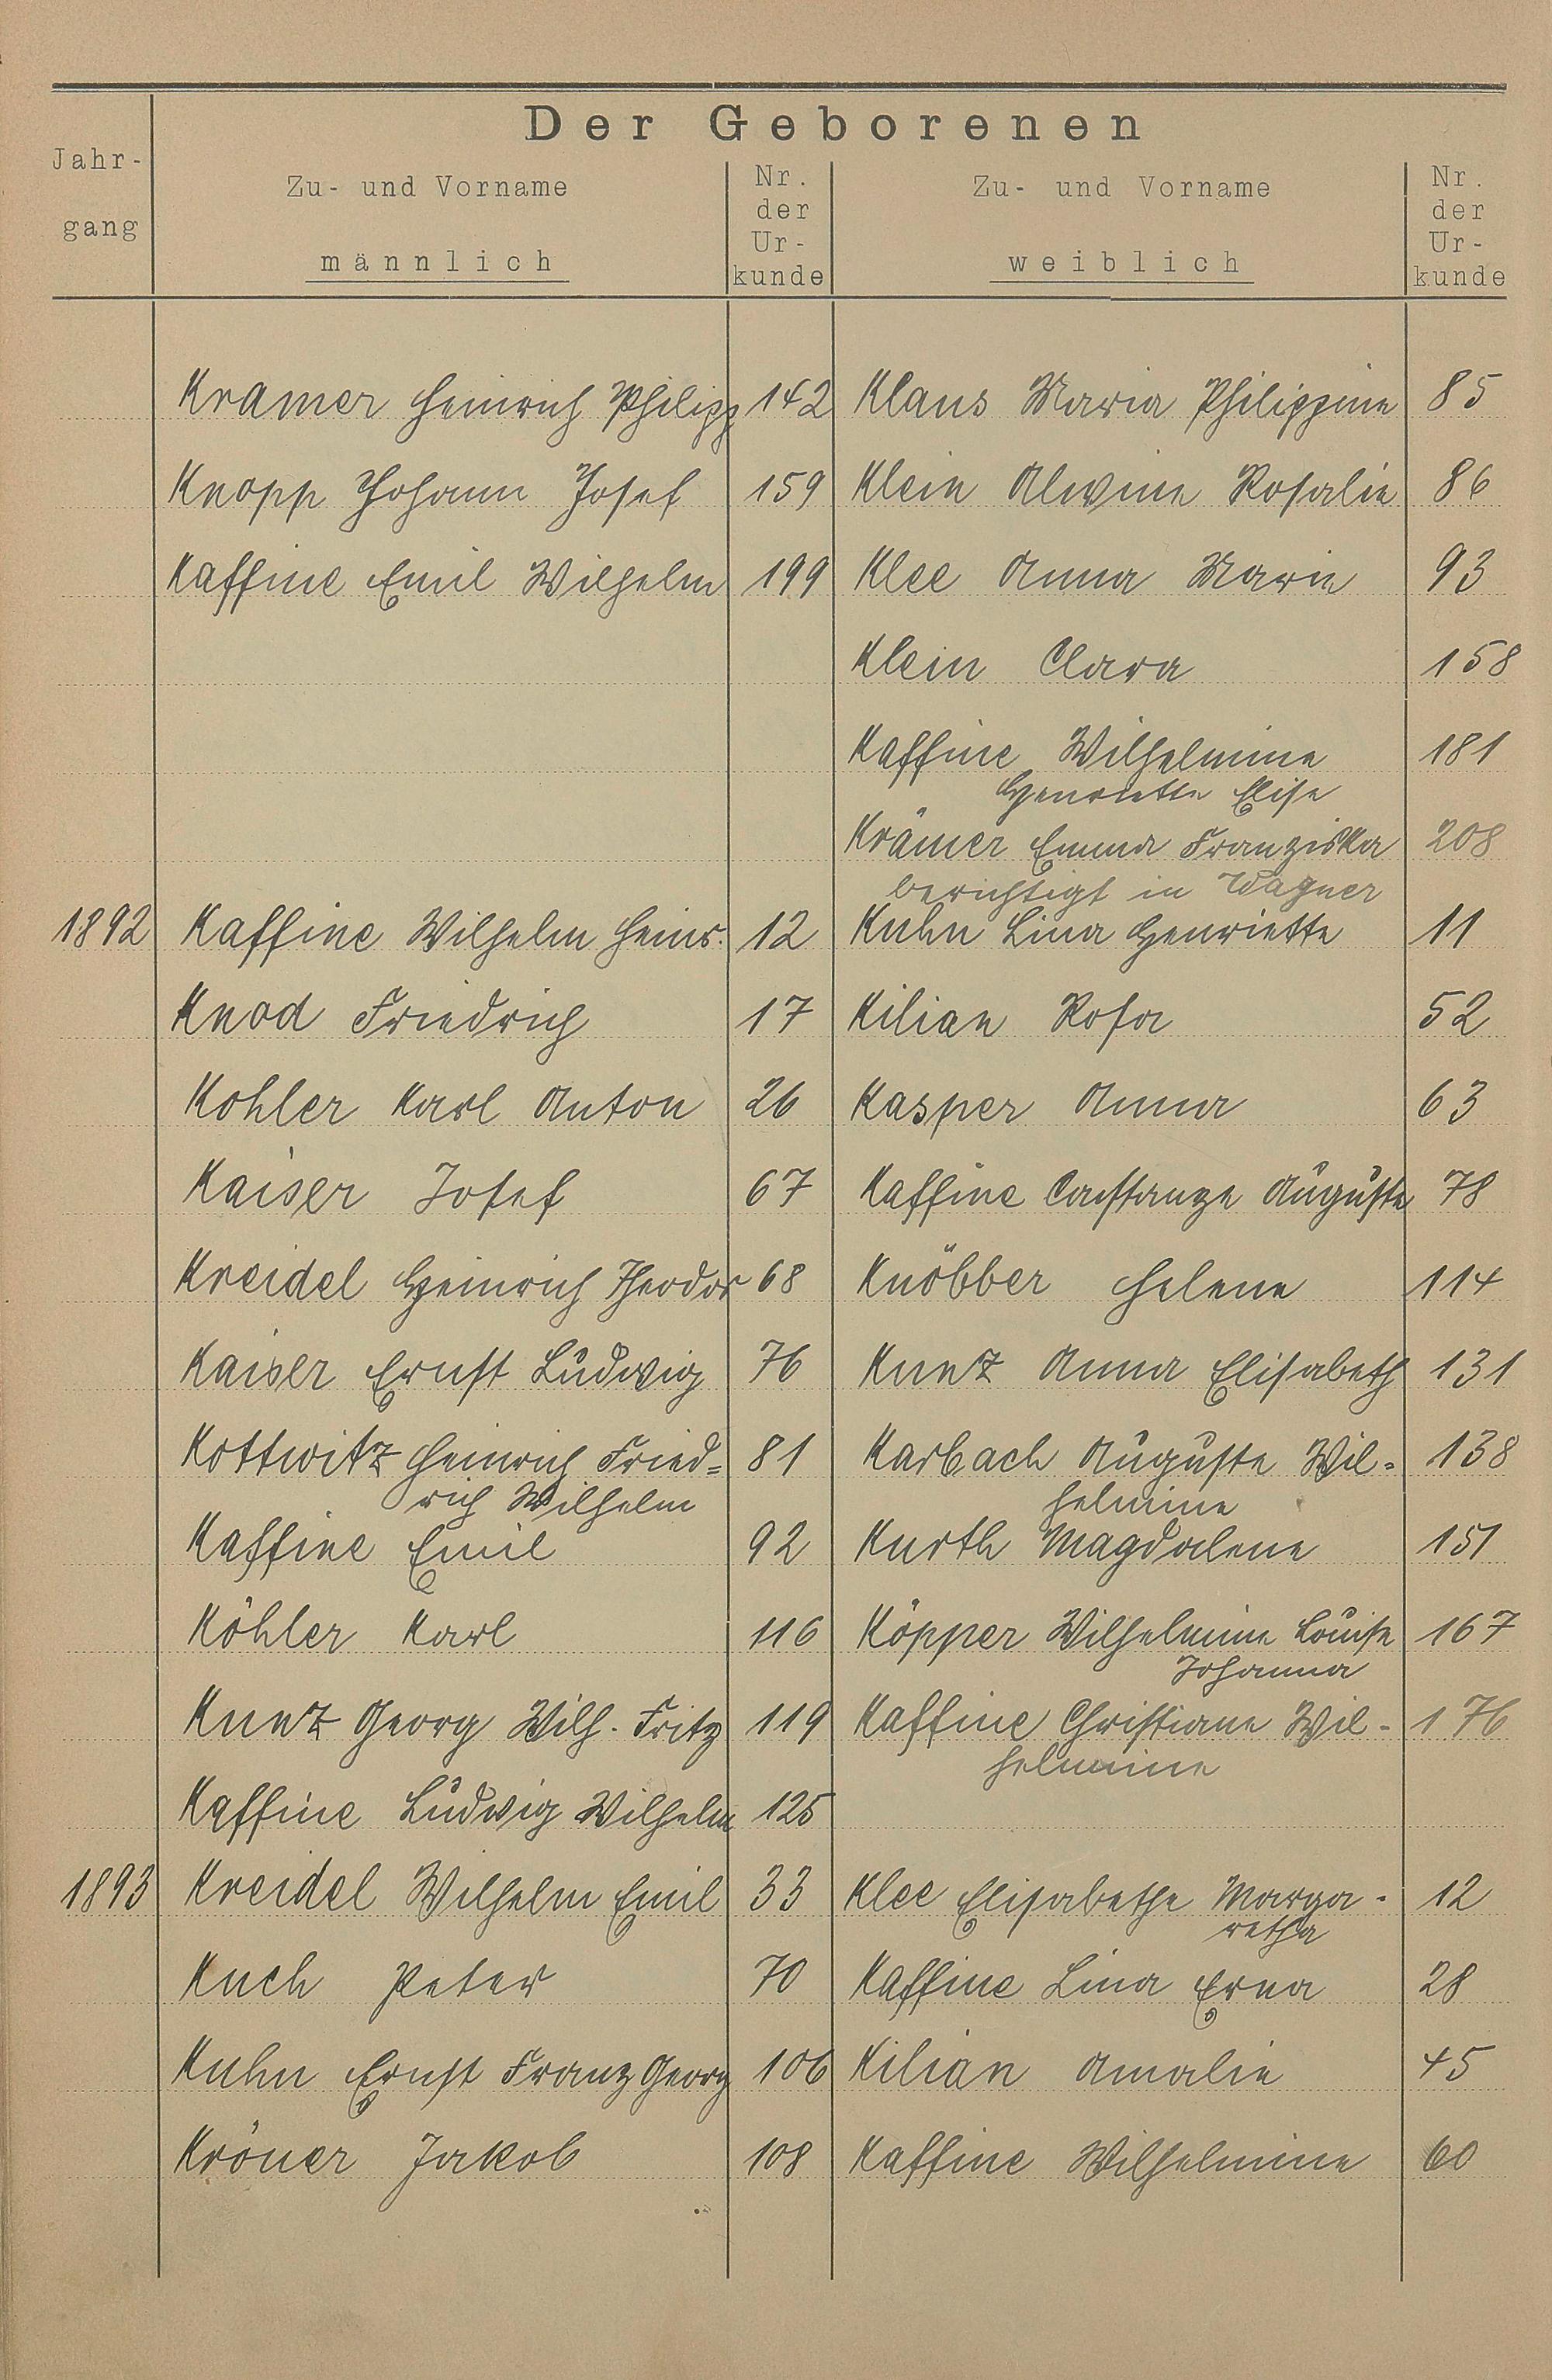 Der Geborenen
Jahr-
gang
Zu- und Vorname
männlich
Nr.
der
Ur-
kunde
Zu- und Vorname
weiblich
Nr.
der
Ur-
kunde
Kramer Heinrich Philipp 142 Klaus Maria Philippine 85
Knopp Johann Josef 159 Klein Alwine Rosalie 86
Kaffine Emil Wilhelm 199 Klee Anna Marie 93
Klein Clara 158
Kaffine Wilhelmine 181
Henriette Elise
Krämer Emma Franziska 208
berichtigt in Wagner
1892 Kaffine Wilhelm Heinr. 12 Kuhn Lina Henriette 11
Knod Friedrich 17 Kilian Rosa 52
Kohler Karl Anton 26 Kasper Anna 63
Kaiser Josef 67 Kaffine Constanze Auguste 78
Kreidel Heinrich Theodor 68 Knöbber Helene 114
Kaiser Ernst Ludwig 76 Kunz Anna Elisabeth 131
Kottwitz Heinrich Fried= 81 Karbach Auguste Wil= 138
rich Wilhelm helmine
Kaffine Emil 92 Kurth Magdalene 151
Köhler Karl 116 Köpper Wilhelmine Louise 167
Johanna
Kunz Georg Wilh. Fritz 119 Kaffine Christiane Wil- 176
helmine
Kaffine Ludwig Wilhelm 125
1893 Kreidel Wilhelm Emil 33 Klee Elisabethe Marga- 12
retha
Kuch Peter 70 Kaffine Lina Erna 28
Kuhn Ernst Franz Georg 106 Kilian Amalie 45
Kröner Jakob 108 Kaffine Wilhelmine 60